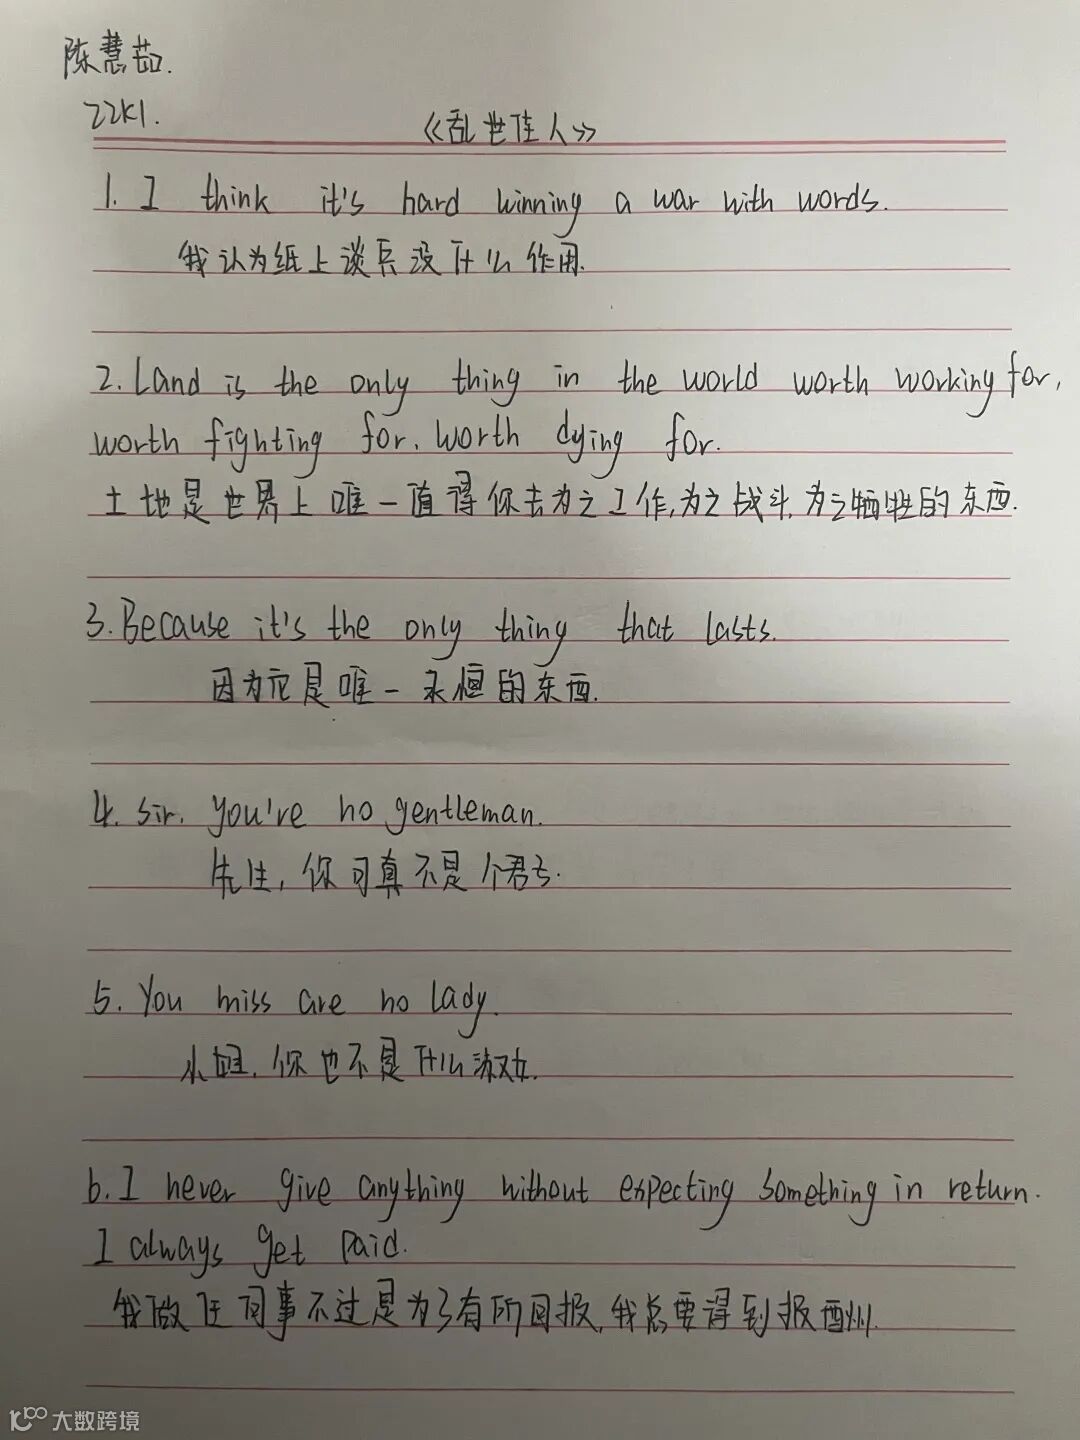 陈慧茹.
22K1.
《乱世佳人》
1. I think it's hard winning a war with words.
我认为纸上谈兵没什么作用.
2. Land is the only thing in the world worth working for,
worth fighting for. worth dying for.
土地是世界上唯一值得你去为之工作,为之战斗,为之牺牲的东西.
3. Because it's the only thing that lasts.
因为它是唯一永恒的东西.
4. Sir. you're no gentleman.
先生,你可真不是个君子.
5. You miss are no lady.
小姐,你也不是什么淑女.
6. I never give anything without expecting something in return.
I always get paid.
我做任何事不过是为了有所回报,我总要得到报酬.
大数跨境